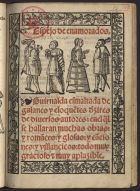 Espejo de enamorados.
Guirnalda esmaltada de
galanes y eloquētes dezires
de diuersos autores: en el qł
se hallaran muchas obras
y romāces y glosas y cācio
nes y villancicos: todo muy
gracioso y muy aplazible.